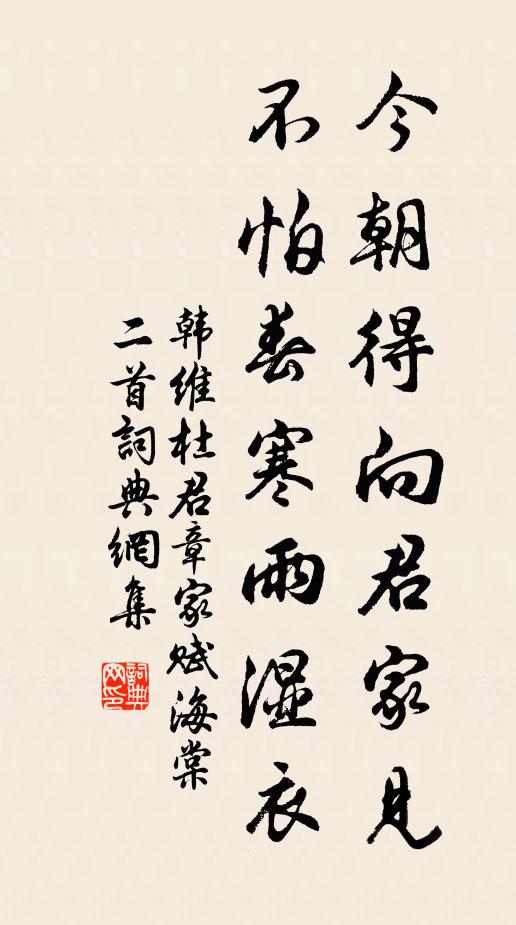 今朝得向君家見
不怕春寒雨濕衣
韩維杜君章家賦海棠
二首詞典網集
詞典网印